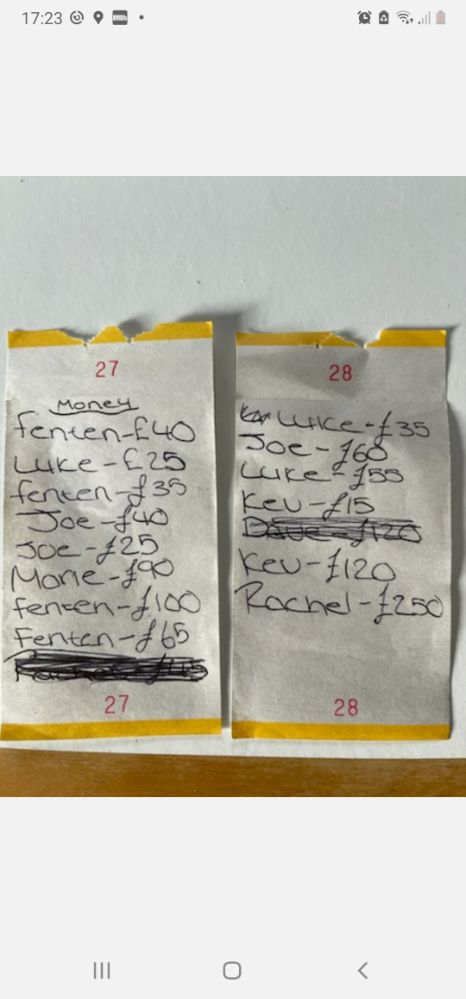 17:23
27
Money
fenten-£40
Luke-£25
fenten-£35
Joe-£40
Joe-£25
Marie-£90
fenten-£100
Fenten-£65
27
28
Luke-£35
Joe-£60
Luke-£55
Kev-£15
Dave-£120
Kev-£120
Rachel-£250
28